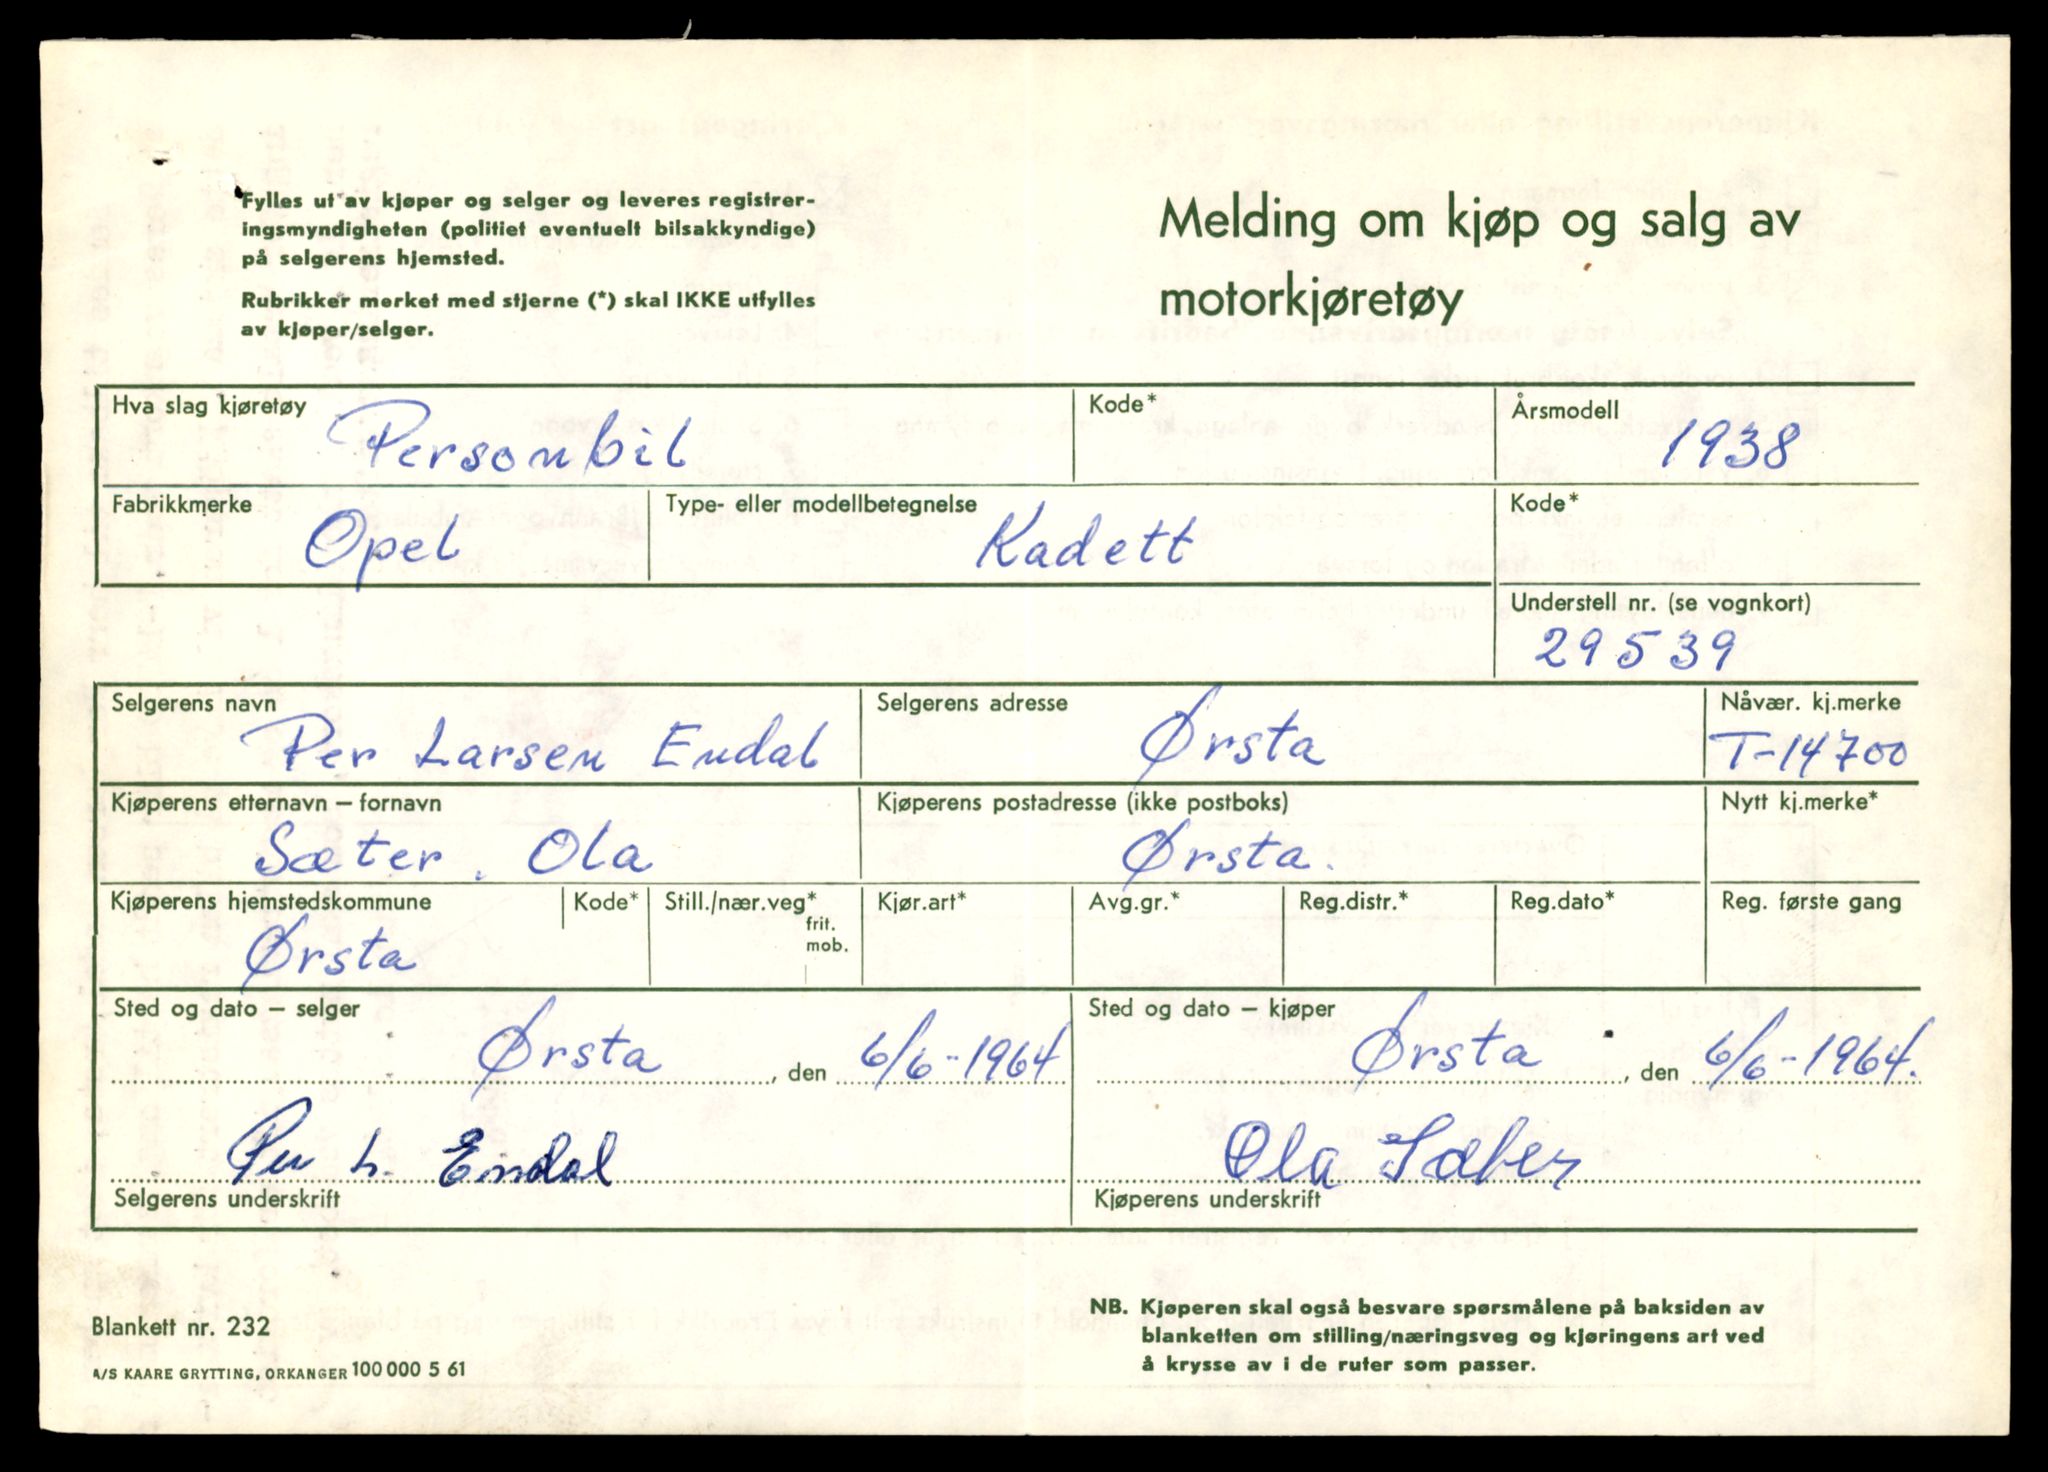 Fylles ut av kjøper og selger og leveres registrer-
ingsmyndigheten (politiet eventuelt bilsakkyndige)
på selgerens hjemsted.
Rubrikker merket med stjerne (*) skal IKKE utfylles
av kjøper/selger.
Melding om kjøp og salg av
motorkjøretøy
Hva slag kjøretøy
Personbil
Kode*
Årsmodell
1938
Fabrikkmerke
Opel
Type- eller modellbetegnelse
Kadett
Kode*
Understell nr. (se vognkort)
29539
Selgerens navn
Per Larsen Endal
Selgerens adresse
Ørsta
Nåvær. kj.merke
T-14700
Kjøperens etternavn – fornavn
Sæter. Ola
Kjøperens postadresse (ikke postboks)
Ørsta.
Nytt kj.merke*
Kjøperens hjemstedskommune
Ørsta
Kode*
Still./nær.veg*
frit.
mob.
Kjør.art*
Avg.gr.*
Reg.distr.*
Reg.dato*
Reg. første gang
Sted og dato – selger
Ørsta, den 6/6-1964
Sted og dato – kjøper
Ørsta, den 6/6-1964.
Per L. Endal
Selgerens underskrift
Ola Sæter
Kjøperens underskrift
Blankett nr. 232
A/S KAARE GRYTTING, ORKANGER 100 000 5 61
NB. Kjøperen skal også besvare spørsmålene på baksiden av
blanketten om stilling/næringsveg og kjøringens art ved
å krysse av i de ruter som passer.